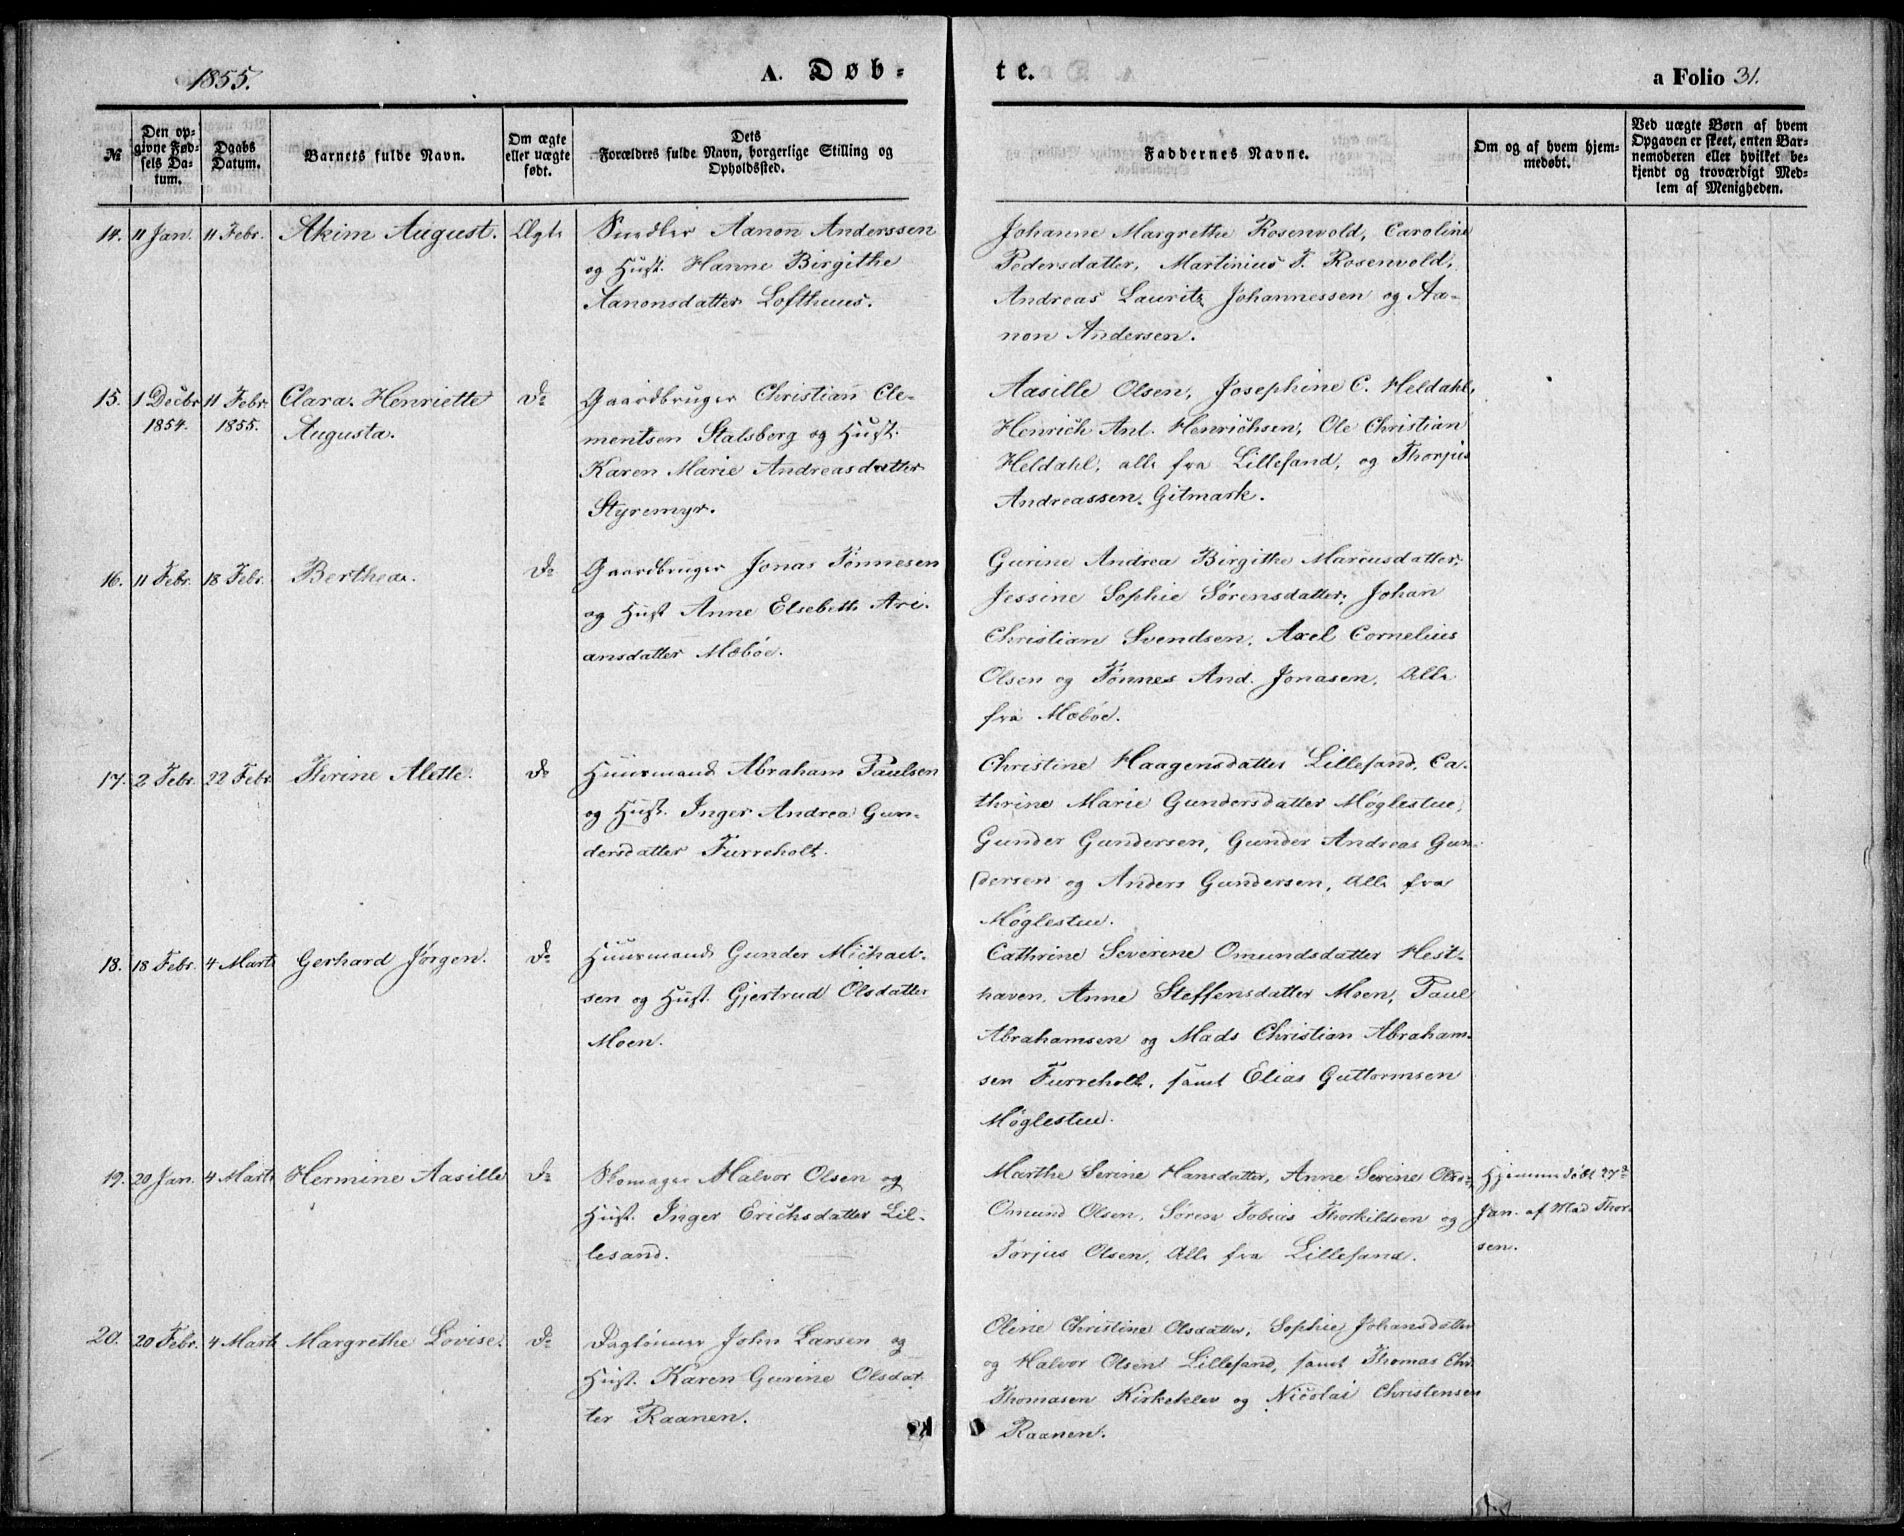 1855.
A. Døb-
te.
a Folio 31.
№
Den op-
givne Fød-
sels Da-
tum.
Daabs
Datum.
Barnets fulde Navn.
Om ægte
eller uægte
født.
Dets
Forældres fulde Navn, borgerlige Stilling og
Opholdssted.
Faddernes Navne.
Om og af hvem hjem-
medøbt.
Ved uægte Børn af hvem
Opgaven er skeet, enten Bar-
nemoderen eller hvilket be-
kjendt og troværdigt Med-
lem af Menigheden.
14. 11 Jan. 11 Febr. Akim August. Ægte
Snedker Aanon Anderssen
og Hust. Hanne Birgithe
Aanonsdatter Lofthuus.
Johanne Margrethe Rosenvold, Caroline
Pedersdatter, Martinius T. Rosenvold,
Andreas Lauritz Johannessen og Aa-
non Andersen.
15. 1 Decbr 1854. 11 Febr. 1855. Clara Henriette
Augusta. Do
Gaardbruger Christian Cle-
mentsen Stalsberg og Hust.
Karen Marie Andreasdatter
Styremyr.
Aasille Olsen, Josephine C. Heldahl,
Henrich Ant. Henrichsen, Ole Christian
Heldahl, alle fra Lillesand, og Thorjus
Andreassen Gitmark.
16. 11 Febr. 18 Febr. Berthea. Do
Gaardbruger Jonas Tønnesen
og Hust Anne Elsebeth Ari-
ansdatter Mæbøe.
Gurine Andrea Birgithe Marcusdatter,
Jessine Sophie Sørensdatter, Johan
Christian Svendsen, Axel Cornelius
Olsen og Tønnes And. Jonasen, Alle
fra Mæbøe.
17. 2 Febr. 22 Febr. Thrine Alette. Do
Huusmand Abraham Paulsen
og Hust. Inger Andrea Gun-
dersdatter Furreholt.
Christine Haagensdatter Lillesand, Ca-
thrine Marie Gundersdatter Møglestue,
Gunder Gundersen, Gunder Andreas Gun-
dersen og Anders Gundersen, Alle fra
Møglestue.
18. 18 Febr. 4 Marts Gerhard Jørgen. Do
Huusmand Gunder Michael-
sen og Hust. Gjertrud Olsdatter
Moen.
Cathrine Severine Omundsdatter Hest-
haven, Anne Steffensdatter Moen, Paul
Abrahamsen og Mads Christian Abraham-
sen Furreholt, samt Elias Guttormsen
Møglestue.
19. 20 Jan. 4 Marts Hermine Aasille Do
Skomager Halvor Olsen og
Hust. Inger Erichsdatter Lil-
lesand.
Marthe Serine Hansdatter, Anne Serine
Omund Olsen, Søren Tobias Thorkildsen og
Torjus Olsen, Alle fra Lillesand.
Hjemmedøbt 27d
Jan. af Mad Thor-
sen.
20. 20 Febr. 4 Marts Margrethe Lovise. Do
Daglønner John Larsen og
Hust. Karen Gurine Olsdat-
ter Raanen.
Oline Christine Olsdatter, Sophie Johansdatter
og Halvor Olsen Lillesand, samt Thomas Chr.
Thomasen Kirkeklev og Nicolai Christensen
Raanen.